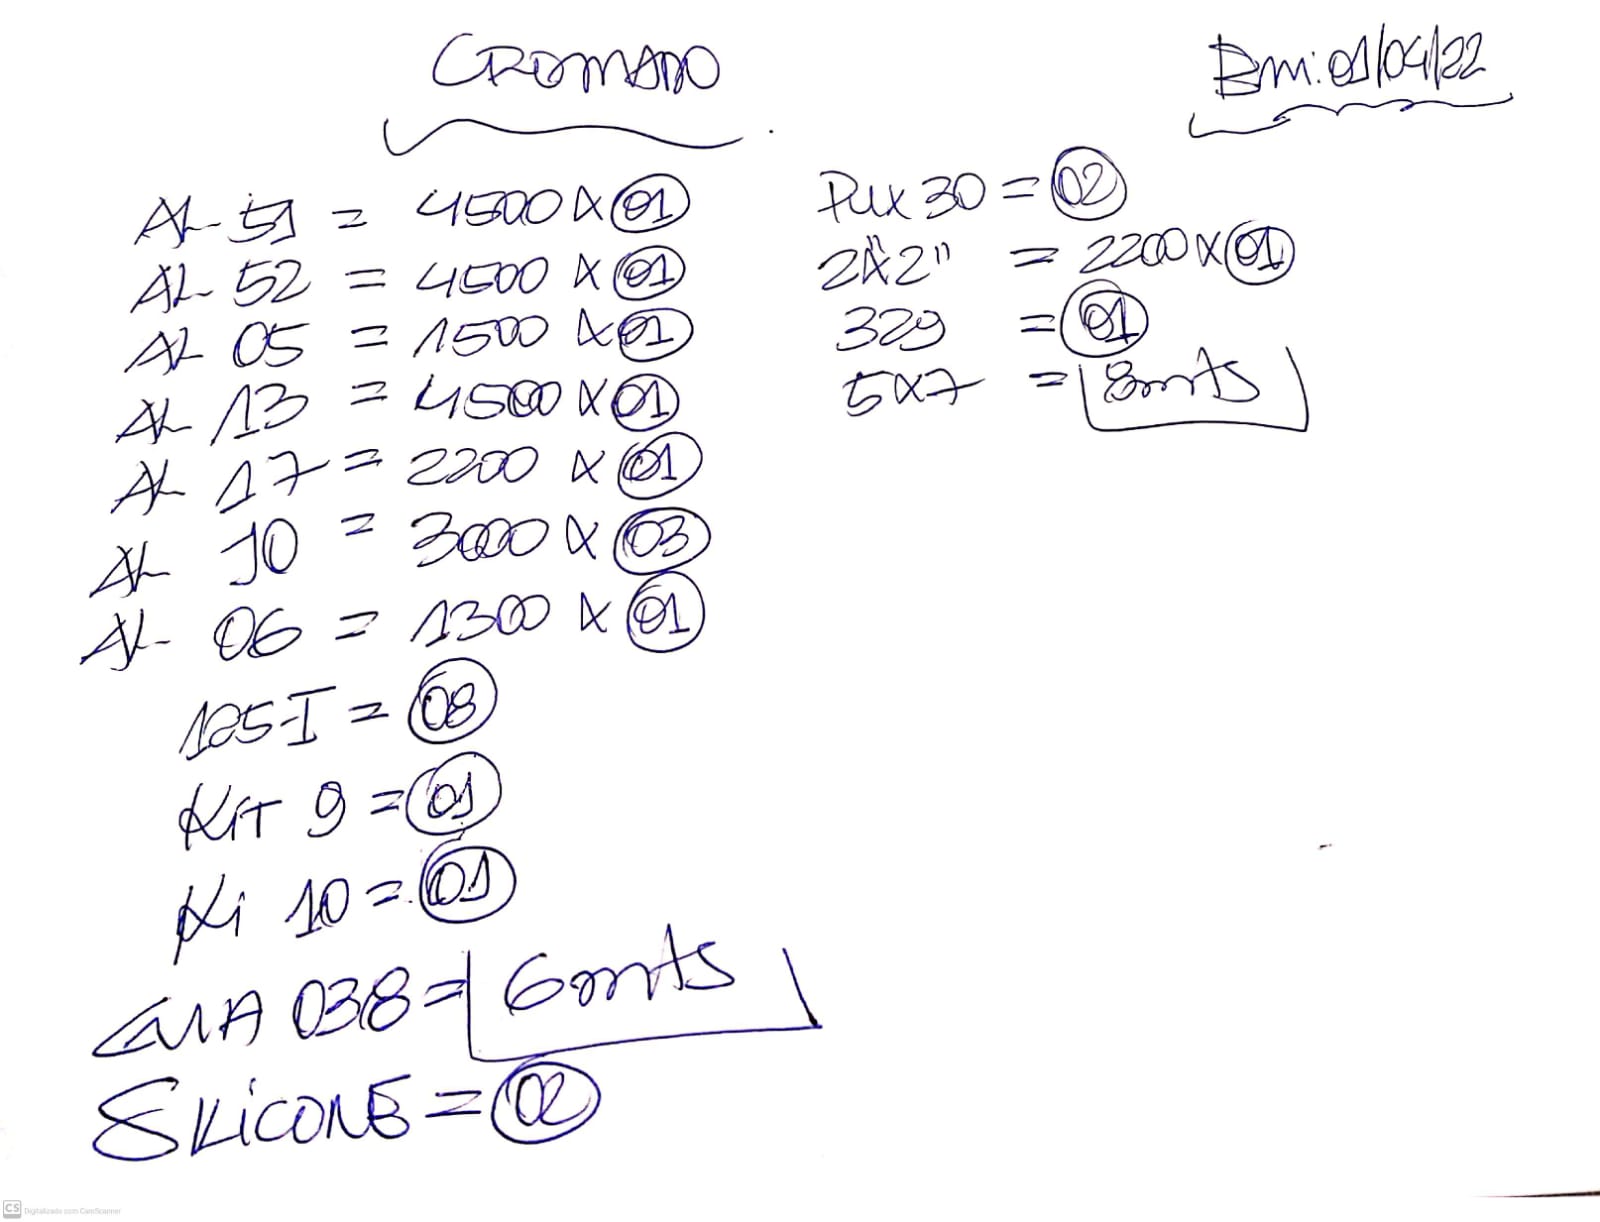 CROMADO
Bmi: 01/04/22
AL 51 = 4500 X 01
AL 52 = 4500 X 01
AL 05 = 1500 X 01
AL 13 = 4500 X 01
AL 17 = 2200 X 01
AL 10 = 3000 X 03
AL 06 = 1300 X 01
125-I = 08
KIT 9 = 01
Ki 10 = 01
GUIA 038 = 6mts
SILICONE = 02
Pux 30 = 02
2"x2" = 2200 X 01
329 = 01
5x7 = 8mts
CS Digitalizado com CamScanner